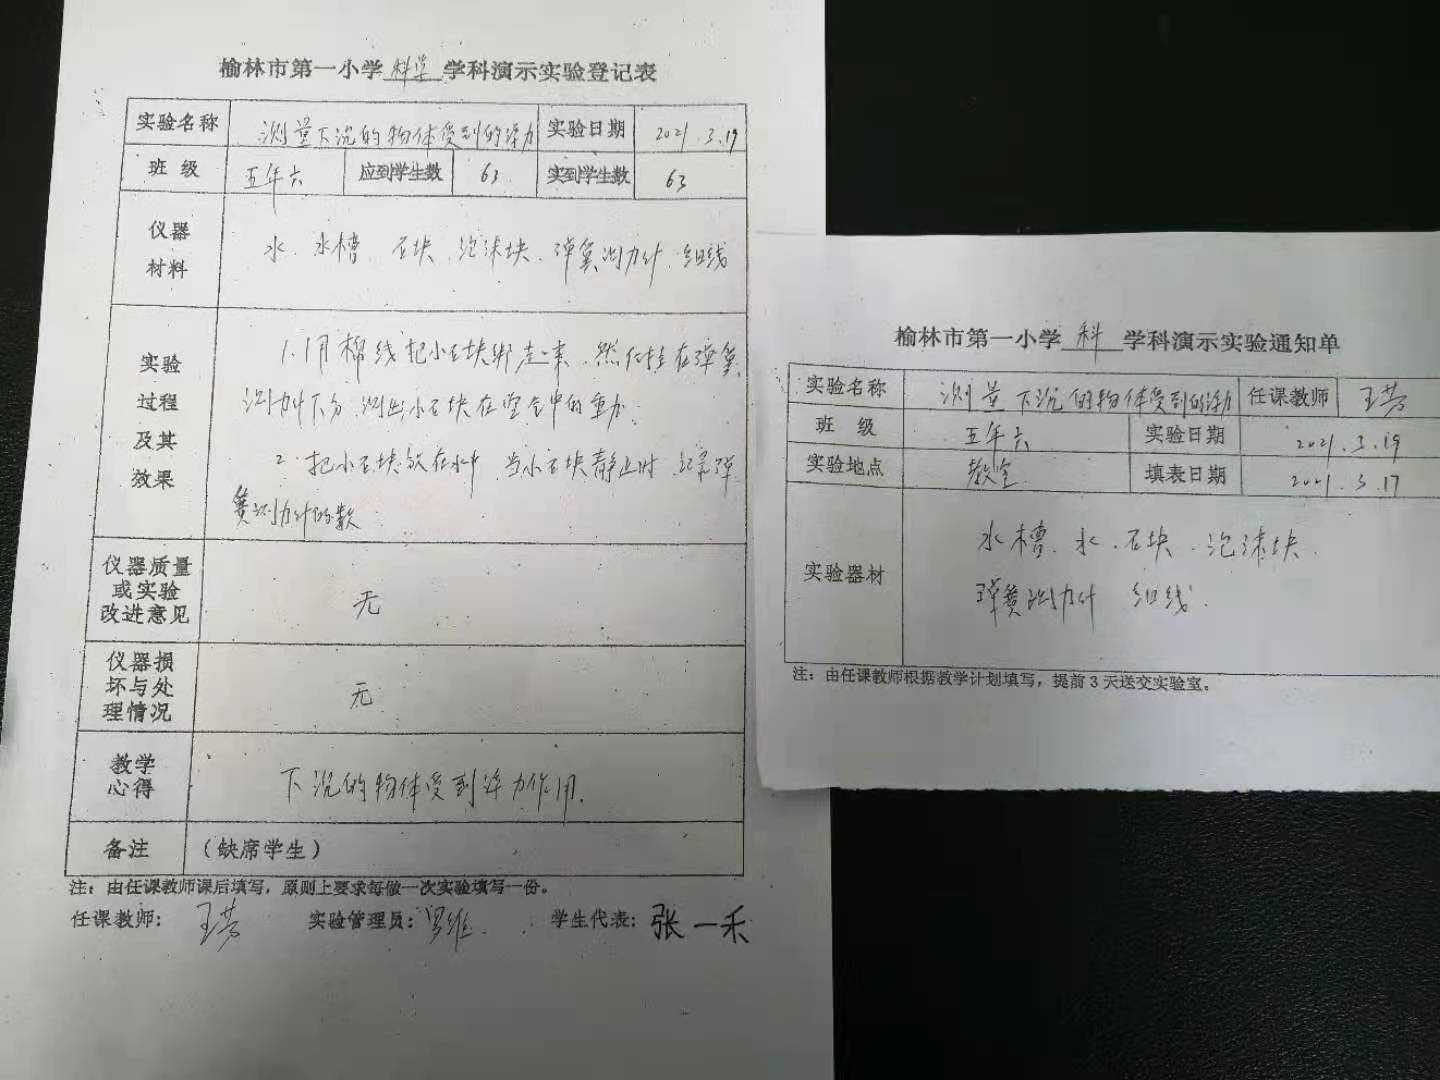 榆林市第一小学 科学 学科演示实验登记表
实验名称 测量下沉的物体受到的浮力 实验日期 2021.3.19
班 级 五年六 应到学生数 63 实到学生数 63
仪器
材料
水、水槽、石块、泡沫块、弹簧测力计、细线
实验
过程
及其
效果
1.用棉线把小石块绑起来,然后挂在弹簧
测力计下方,测出小石块在空气中的重力.
2.把小石块放在水中,当小石块静止时,记录弹
簧测力计的数
仪器质量
或实验
改进意见
无
仪器损
坏与处
理情况
无
教学
心得
下沉的物体受到浮力作用.
备注 (缺席学生)
注:由任课教师课后填写,原则上要求每做一次实验填写一份。
任课教师: 王芳 实验管理员: 罗维 学生代表: 张一禾
榆林市第一小学 科 学科演示实验通知单
实验名称 测量下沉的物体受到的浮力 任课教师 王芳
班 级 五年六 实验日期 2021.3.19
实验地点 教室 填表日期 2021.3.17
实验器材
水槽、水、石块、泡沫块、
弹簧测力计 细线.
注:由任课教师根据教学计划填写,提前3天送交实验室。